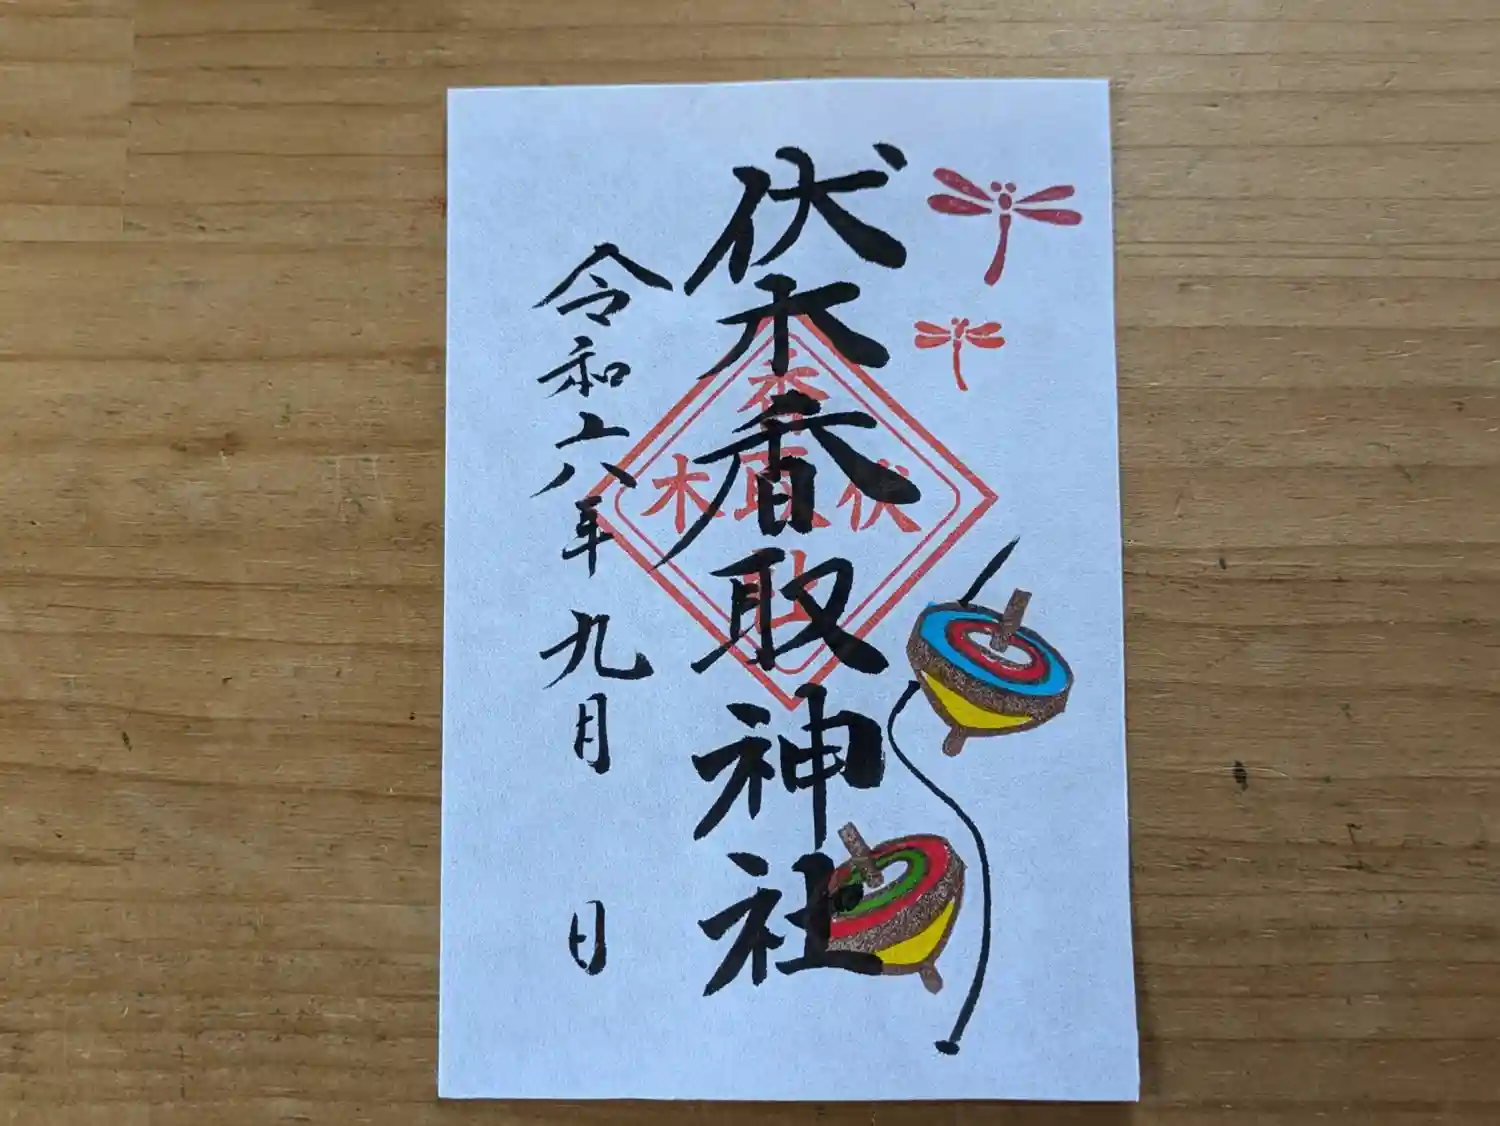 伏木香取神社
令和六年九月 日
香
木取伏
社